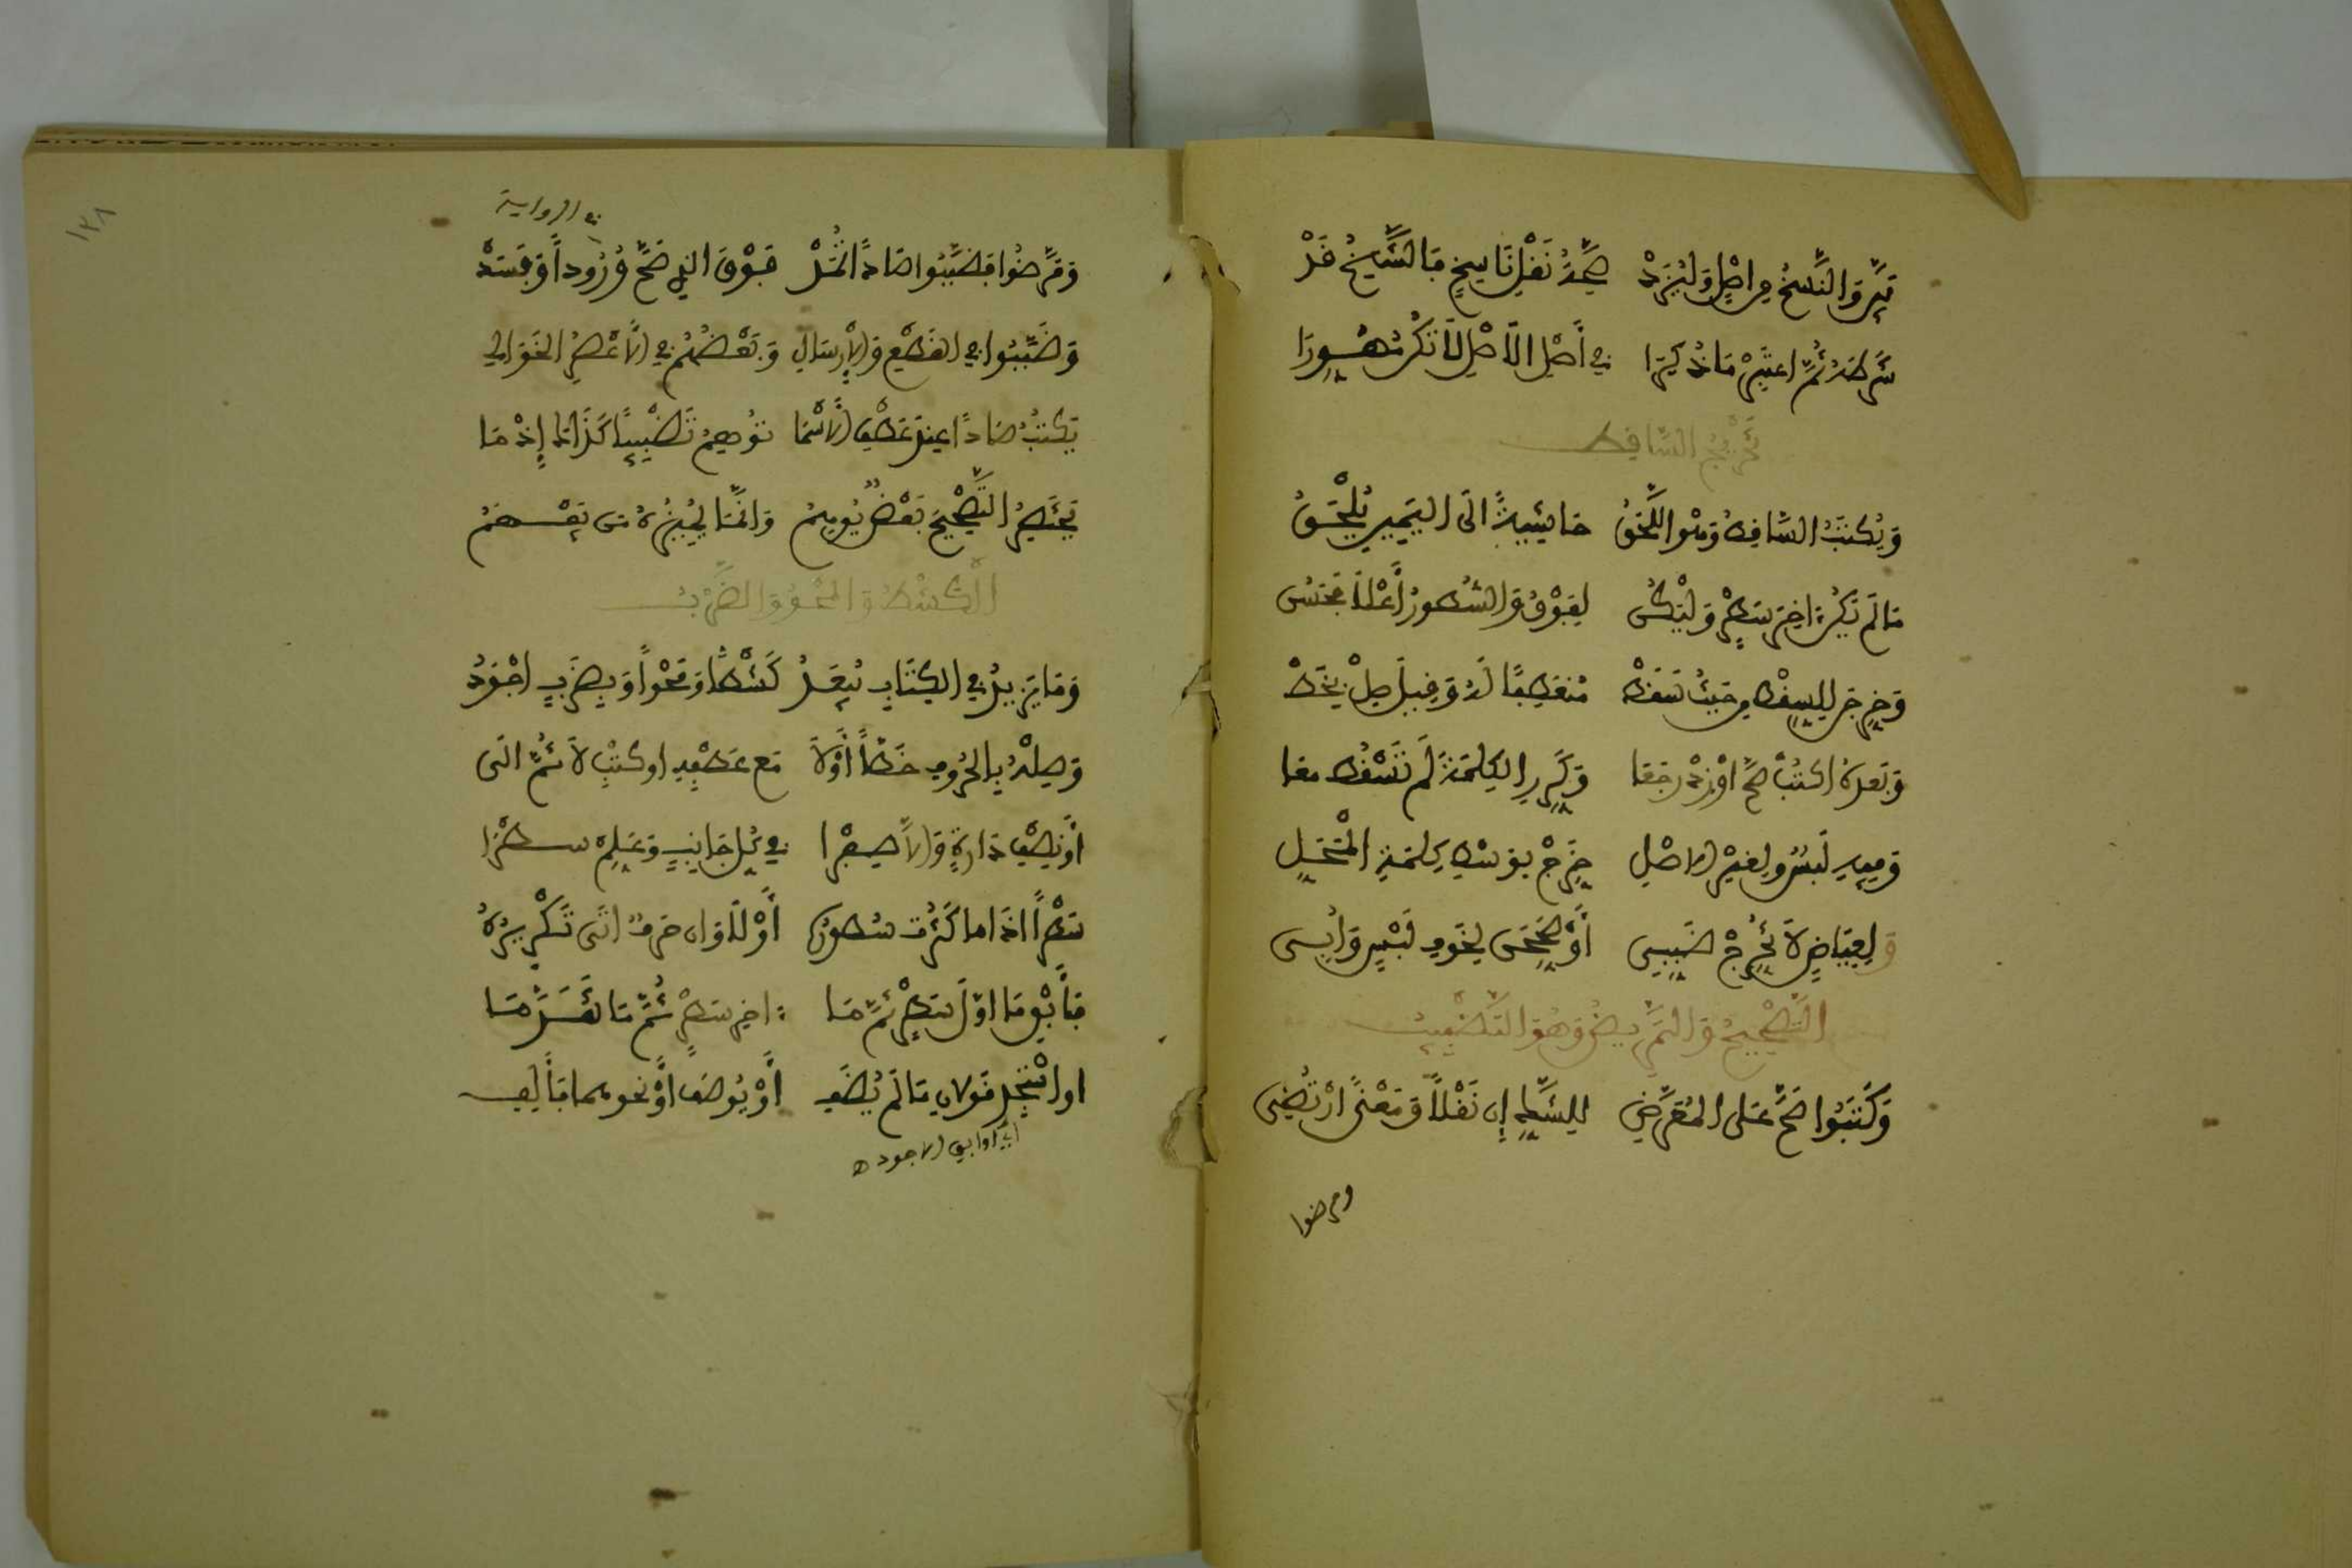 بين والنسخ من اصل وليزد صحة نقل ناسخ فالشيخ قد
شرطه ثم اعتبر ما ذكرا في أصل الأصل لا تكن مهورا
تخريج الساقط
ويكتب الساقط وهو اللحق حاشية الى اليمين يلحق
ما لم يكن اخر سطر وليكن لفوق والسطور أعلا فحسن
وخرجن للسقط من حيث سقط منعطفا له وقيل صل بخط
وبعده اكتب صح او زد رجعا وكرر الكلمة لم تسقط معا
وفيه لبس ولغير الاصل خرج بوسط كلمة المحل
ولعياض لا تخرج ضبب أو صححن لخوف لبس وابي
التصحيح والتمريض وهو التضبيب
وكتبوا صح على المعرض للشك إن نقلا ومعنى ارتضي
ومرضوا
في الرواية
ومرضوا فضببوا صادا تمد فوق الذي صح ورودا وفسد
وضببوا في القطع والإرسال وبعضهم في الأعصر الخوالي
يكتب صادا عند عطف الأسما توهم تضبيبا كذاك إذ ما
يختصر التصحيح بعض يوهم وانما يميزه من يفهم
الكشط والمحو والضرب
وما يزيد في الكتاب يبعد كشطا ومحوا وبضرب اجود
وصله بالحروف خطا أولا مع عطفه او كتب لا ثم الى
أو نصف دارة والا صفرا في كل جانب وعلم سطرا
سطرا اذا ما كثرت سطوره أولا وان حرف اتى تكريره
فأبق ما اول سطر ثم ما اخر سطر ثم ما تقدما
او استجد قولان ما لم يضف أو يوصف أو نحوهما فألف
أي او ابق الاجود ه
١٣٨